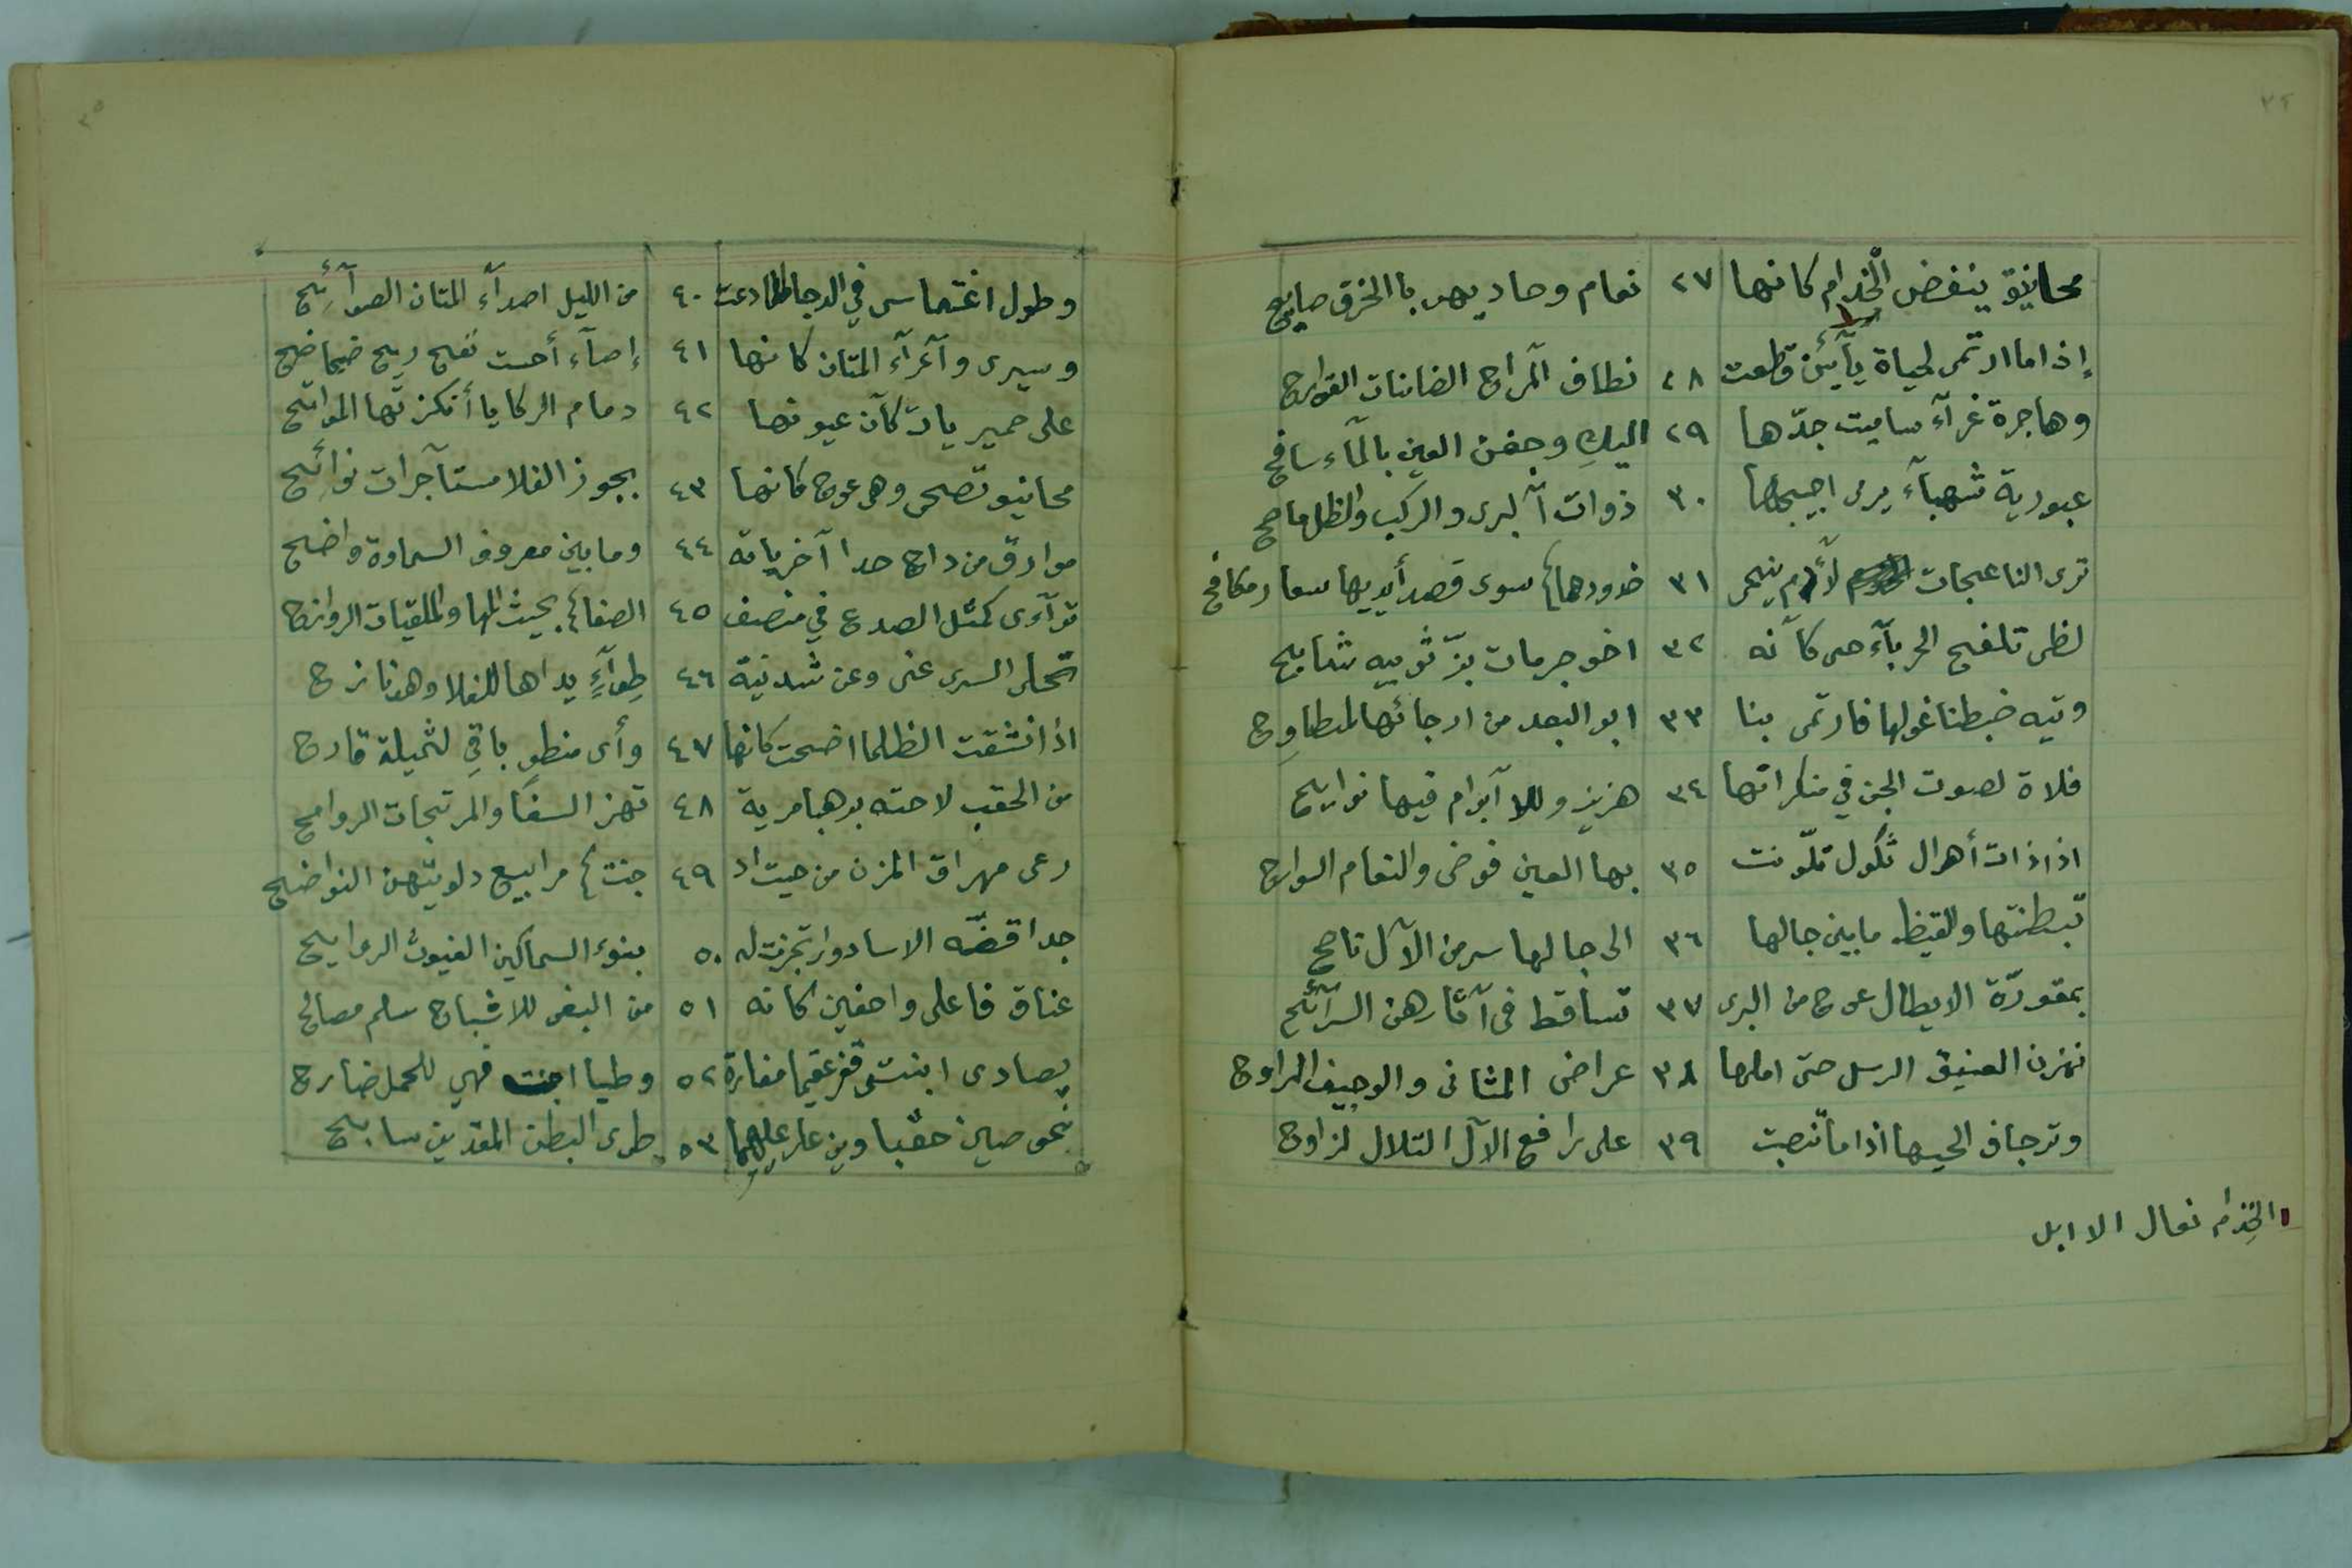 ٣٤
محانيق ينفض الخدام كانها ٢٧ نعام وحاديهن باالخرق صايح
إذا ما ارتمى لحياة يآئين قطعت ٢٨ نطاف آلمراح الضانات القوارح
وهاجرة غرآء ساميت حدّها ٢٩ اليكِ وجفن العين بالمآء سافح
عبورية شهبآء يرمى اجيجها ٣٠ ذوات آلبرى والركب والظل ماصح
ترى الناعجات لأدم ينحى ٣١ خدودها سوى قصد أيديها سعار مكافح
لظى تلفح الحربآء حى كآنه ٣٢ اخو جرمات بزّ ثوبيه شابح
وتيه خبطنا غولها فارتمى بنا ٣٣ ابو البعد من ارجائها المطاوِح
فلاة لصوت الجن في منكراتها ٣٤ هزيز وللا آبوام فيها نوايح
اذا ذات أهوال ثكول تلّونت ٣٥ بها العين فوضى والنعام السوارح
تبطنتها والقيظ ما بين جالها ٣٦ الى جالها سر من الآل ناصح
بمقورّة الايطال عوج من البرى ٣٧ تساقط فى آثارهن السرآئح
نهزن العنيق الرسل حتى املها ٣٨ عراض المثانى والوجيف المراوح
وترجاف الحيها اذا ما تنصبت ٣٩ على رافع الآل التلال لزاوح
١ الخِدام نعال الا ابل
٣٥
وطول اغتماسى في الدجا كلما دعت ٤٠ من الليل اصدآء المتان الصوآئح
وسيرى وآعرآء المتان كانها ٤١ إصآء أحست نفح ريح ضحاضح
على حميريات كآن عيونها ٤٢ دمام الركايا أنكزتها المواتح
محانيو تصحى وهى عوج كانها ٤٣ بجوز الفلا مستآجرات نوائح
موارق من داج حدا آخرياته ٤٤ وما بين معروف السماوة واضح
توآءى كمثل الصدع في منصف ٤٥ الصفا بحيث المها والملقيات الروازح
تحلى السرى عنى وعن شدنية ٤٦ طِوآءٍ يداها للفلا وهو نازح
اذا انشقت الظلما اضحت كانها ٤٧ وأى منطوِ باقِ لثميلة قارح
من الحقب لاحته برهبا مرية ٤٨ تهز السفا والمرتجات الروامح
رعى مهراق المزن من حيث اد ٤٩ جنت مرابيع دلويّهن النواضح
جدا قضّه الاساد وارتجزت له ٥٠ بنوء السماكين الغيوث الروايح
عناق فاعلى واحفين كانه ٥١ من البغى للاشباح سلم مصالح
يصادى ابنتى قفر عقيما مغارة ٥٢ وطيا اجنت فهي للحمل ضارح
نحوصين حقبا وين عار عليهما ٥٣ طوى البطن المقذين سابح